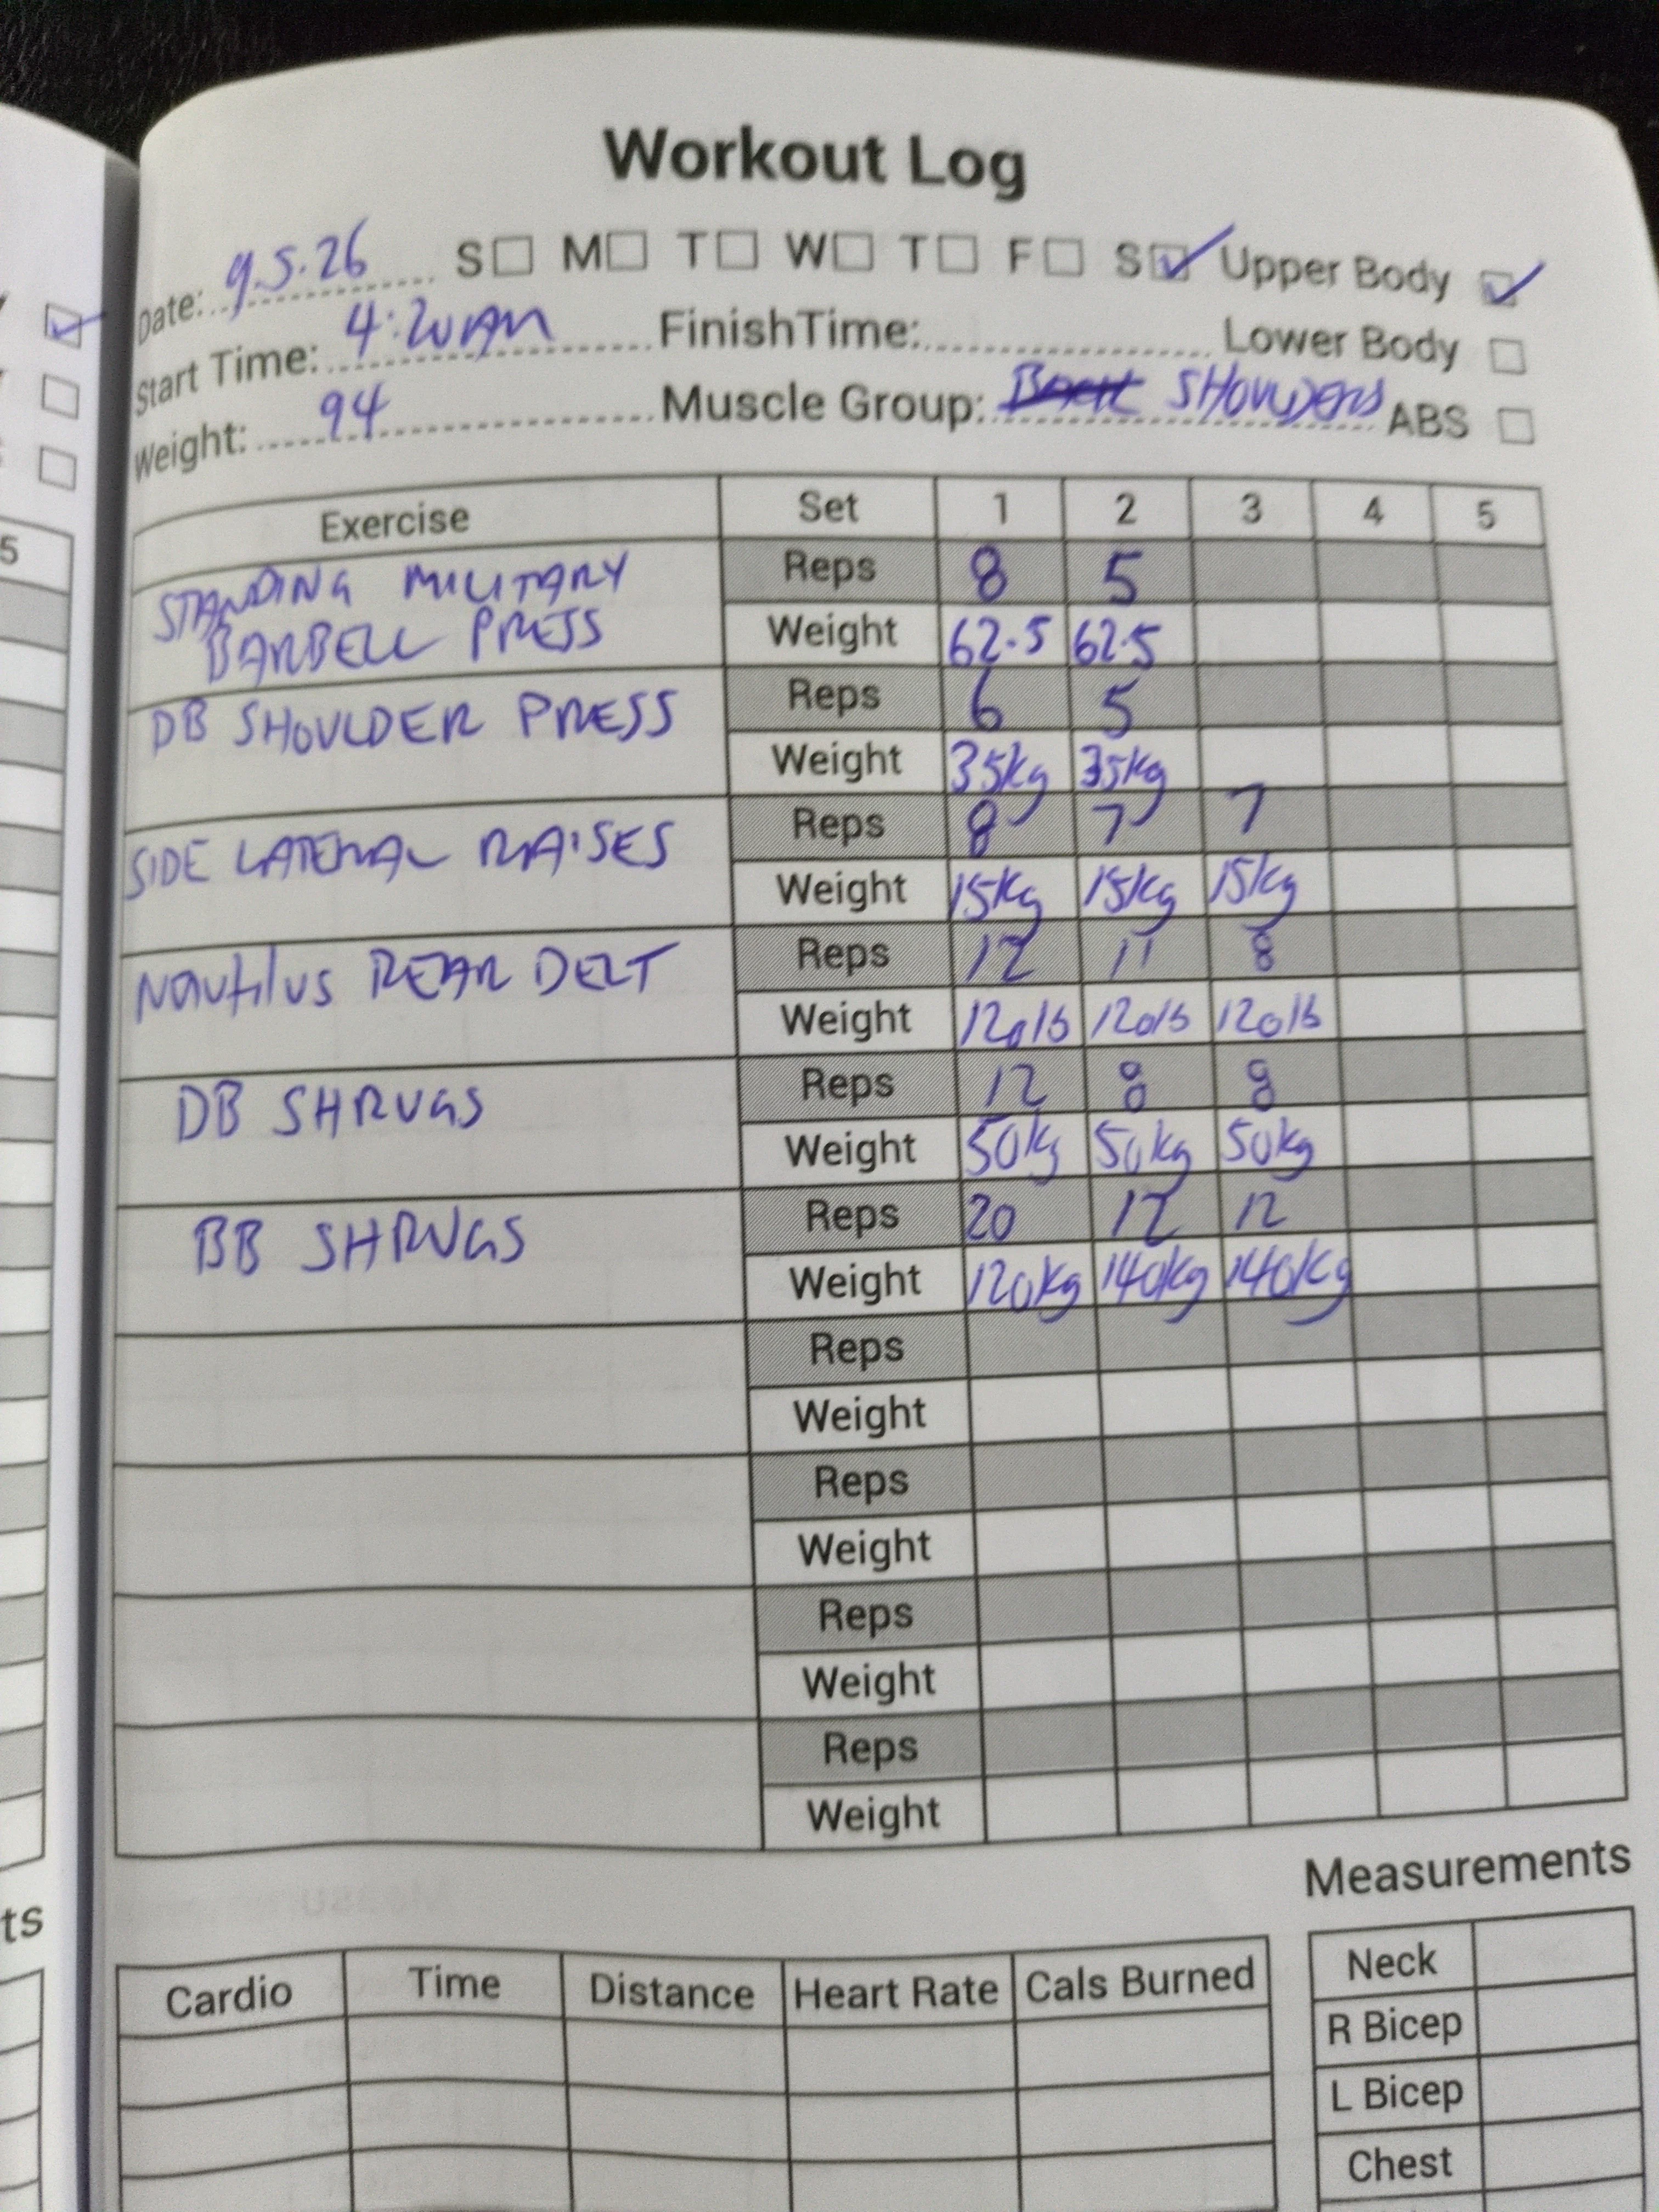 Workout Log
Date: 9.5.26 S M T W T F S Upper Body
Start Time: 4:20AM Finish Time: Lower Body
Weight: 94 Muscle Group: SHOULDERS ABS
Exercise Set 1 2 3 4 5
STANDING MILITARY Reps 8 5
BARBELL PRESS Weight 62.5 62.5
DB SHOULDER PRESS Reps 6 5
Weight 35kg 35kg
SIDE LATERAL RAISES Reps 8 7 7
Weight 15kg 15kg 15kg
Nautilus REAR DELT Reps 12 11 8
Weight 120lb 120lb 120lb
DB SHRUGS Reps 12 8 8
Weight 50kg 50kg 50kg
BB SHRUGS Reps 20 12 12
Weight 120kg 140kg 140kg
Reps
Weight
Reps
Weight
Reps
Weight
Reps
Weight
Measurements
Cardio Time Distance Heart Rate Cals Burned
Neck
R Bicep
L Bicep
Chest
5
ts